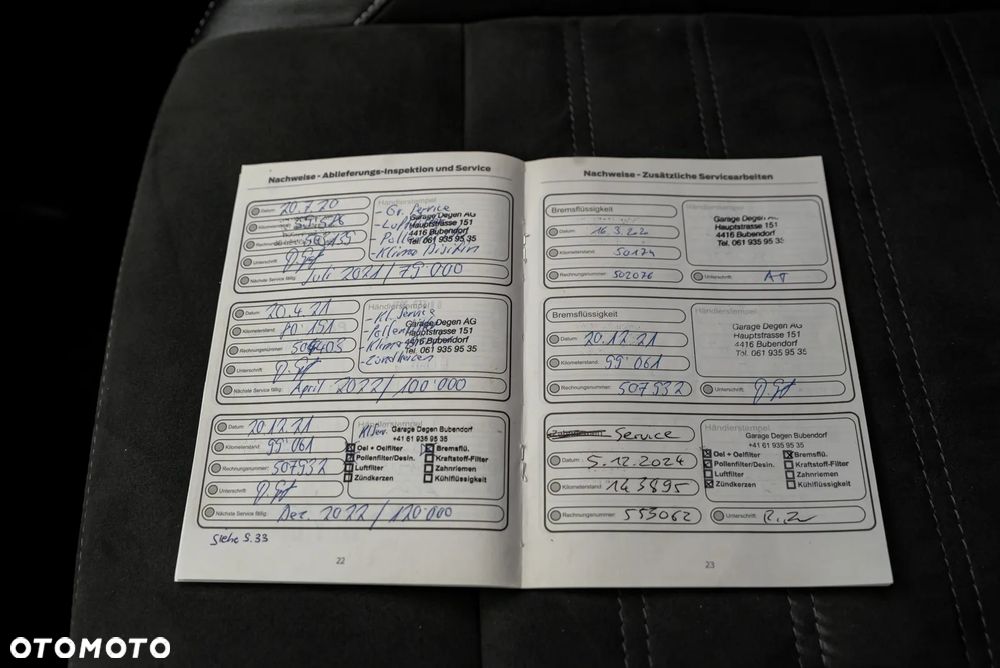 Nachweise - Ablieferungs-Inspektion und Service
Datum: 20.7.20
Kilometerstand:
Rechnungsnummer:
Unterschrift:
Nächste Service fällig: Juli 2021 / 79'000
Händlerstempel
- Gr. Service
Garage Degen AG
Hauptstrasse 151
4416 Bubendorf
Tel. 061 935 95 35
Datum: 20.4.21
Kilometerstand: 80'151
Rechnungsnummer:
Unterschrift:
Nächste Service fällig: April 2022 / 100'000
Händlerstempel
- Kl. Service
Garage Degen AG
Hauptstrasse 151
4416 Bubendorf
Tel. 061 935 95 35
- Zündkerzen
Datum: 20.12.21
Kilometerstand: 99'061
Rechnungsnummer: 507932
Unterschrift:
Nächste Service fällig: Dez. 2022 / 120'000
Händlerstempel
Kl. Serv.
Garage Degen Bubendorf
+41 61 935 95 35
Oel + Oelfilter
Bremsflü.
Pollenfilter/Desin.
Kraftstoff-Filter
Luftfilter
Zahnriemen
Zündkerzen
Kühlflüssigkeit
Siehe S. 33
22
Nachweise - Zusätzliche Servicearbeiten
Bremsflüssigkeit
Datum:
Kilometerstand: 50174
Rechnungsnummer: 502076
Händlerstempel
Garage Degen AG
Hauptstrasse 151
4416 Bubendorf
Tel. 061 935 95 35
Unterschrift:
Bremsflüssigkeit
Datum: 20.12.21
Kilometerstand: 99'061
Rechnungsnummer: 507932
Händlerstempel
Garage Degen AG
Hauptstrasse 151
4416 Bubendorf
Tel. 061 935 95 35
Unterschrift:
Zahnriemen Service
Datum: 5.12.2024
Kilometerstand: 143895
Rechnungsnummer: 553062
Händlerstempel
Garage Degen Bubendorf
+41 61 935 95 35
Oel + Oelfilter
Bremsflü.
Pollenfilter/Desin.
Kraftstoff-Filter
Luftfilter
Zahnriemen
Zündkerzen
Kühlflüssigkeit
Unterschrift:
23
OTOMOTO